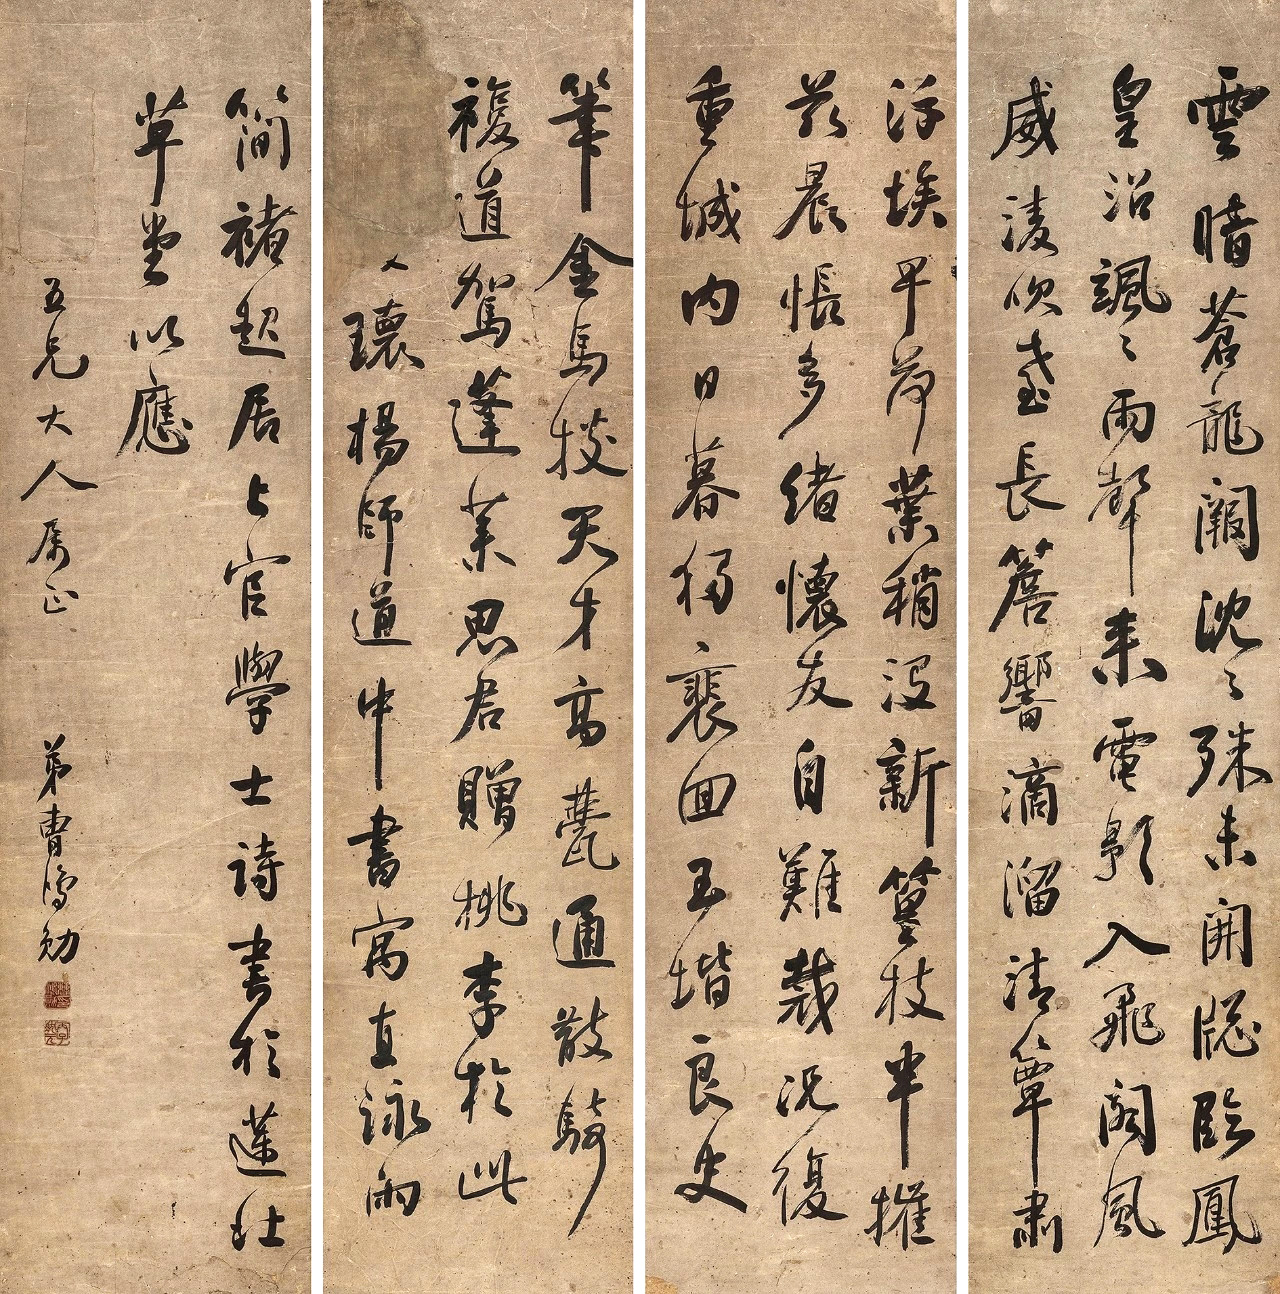 雲暗蒼龍闕沈〻殊未開牕臨鳳
皇沼颯〻雨聲来電影入飛閣風
威淩吹臺長簷響滴溜清簟肅
浮埃早荷葉稍没新篁枝半摧
兹晨悵多緒懷友自難裁況復
重城内日暮獨裴回玉堦良史
筆金馬掞天才高甍通散騎
複道駕蓬莱思君贈桃李於此
瓌楊師道中書寓直詠雨
簡褚起居上官學士詩書於蓮社
草堂以應
五兄大人属正
弟曹鴻勛